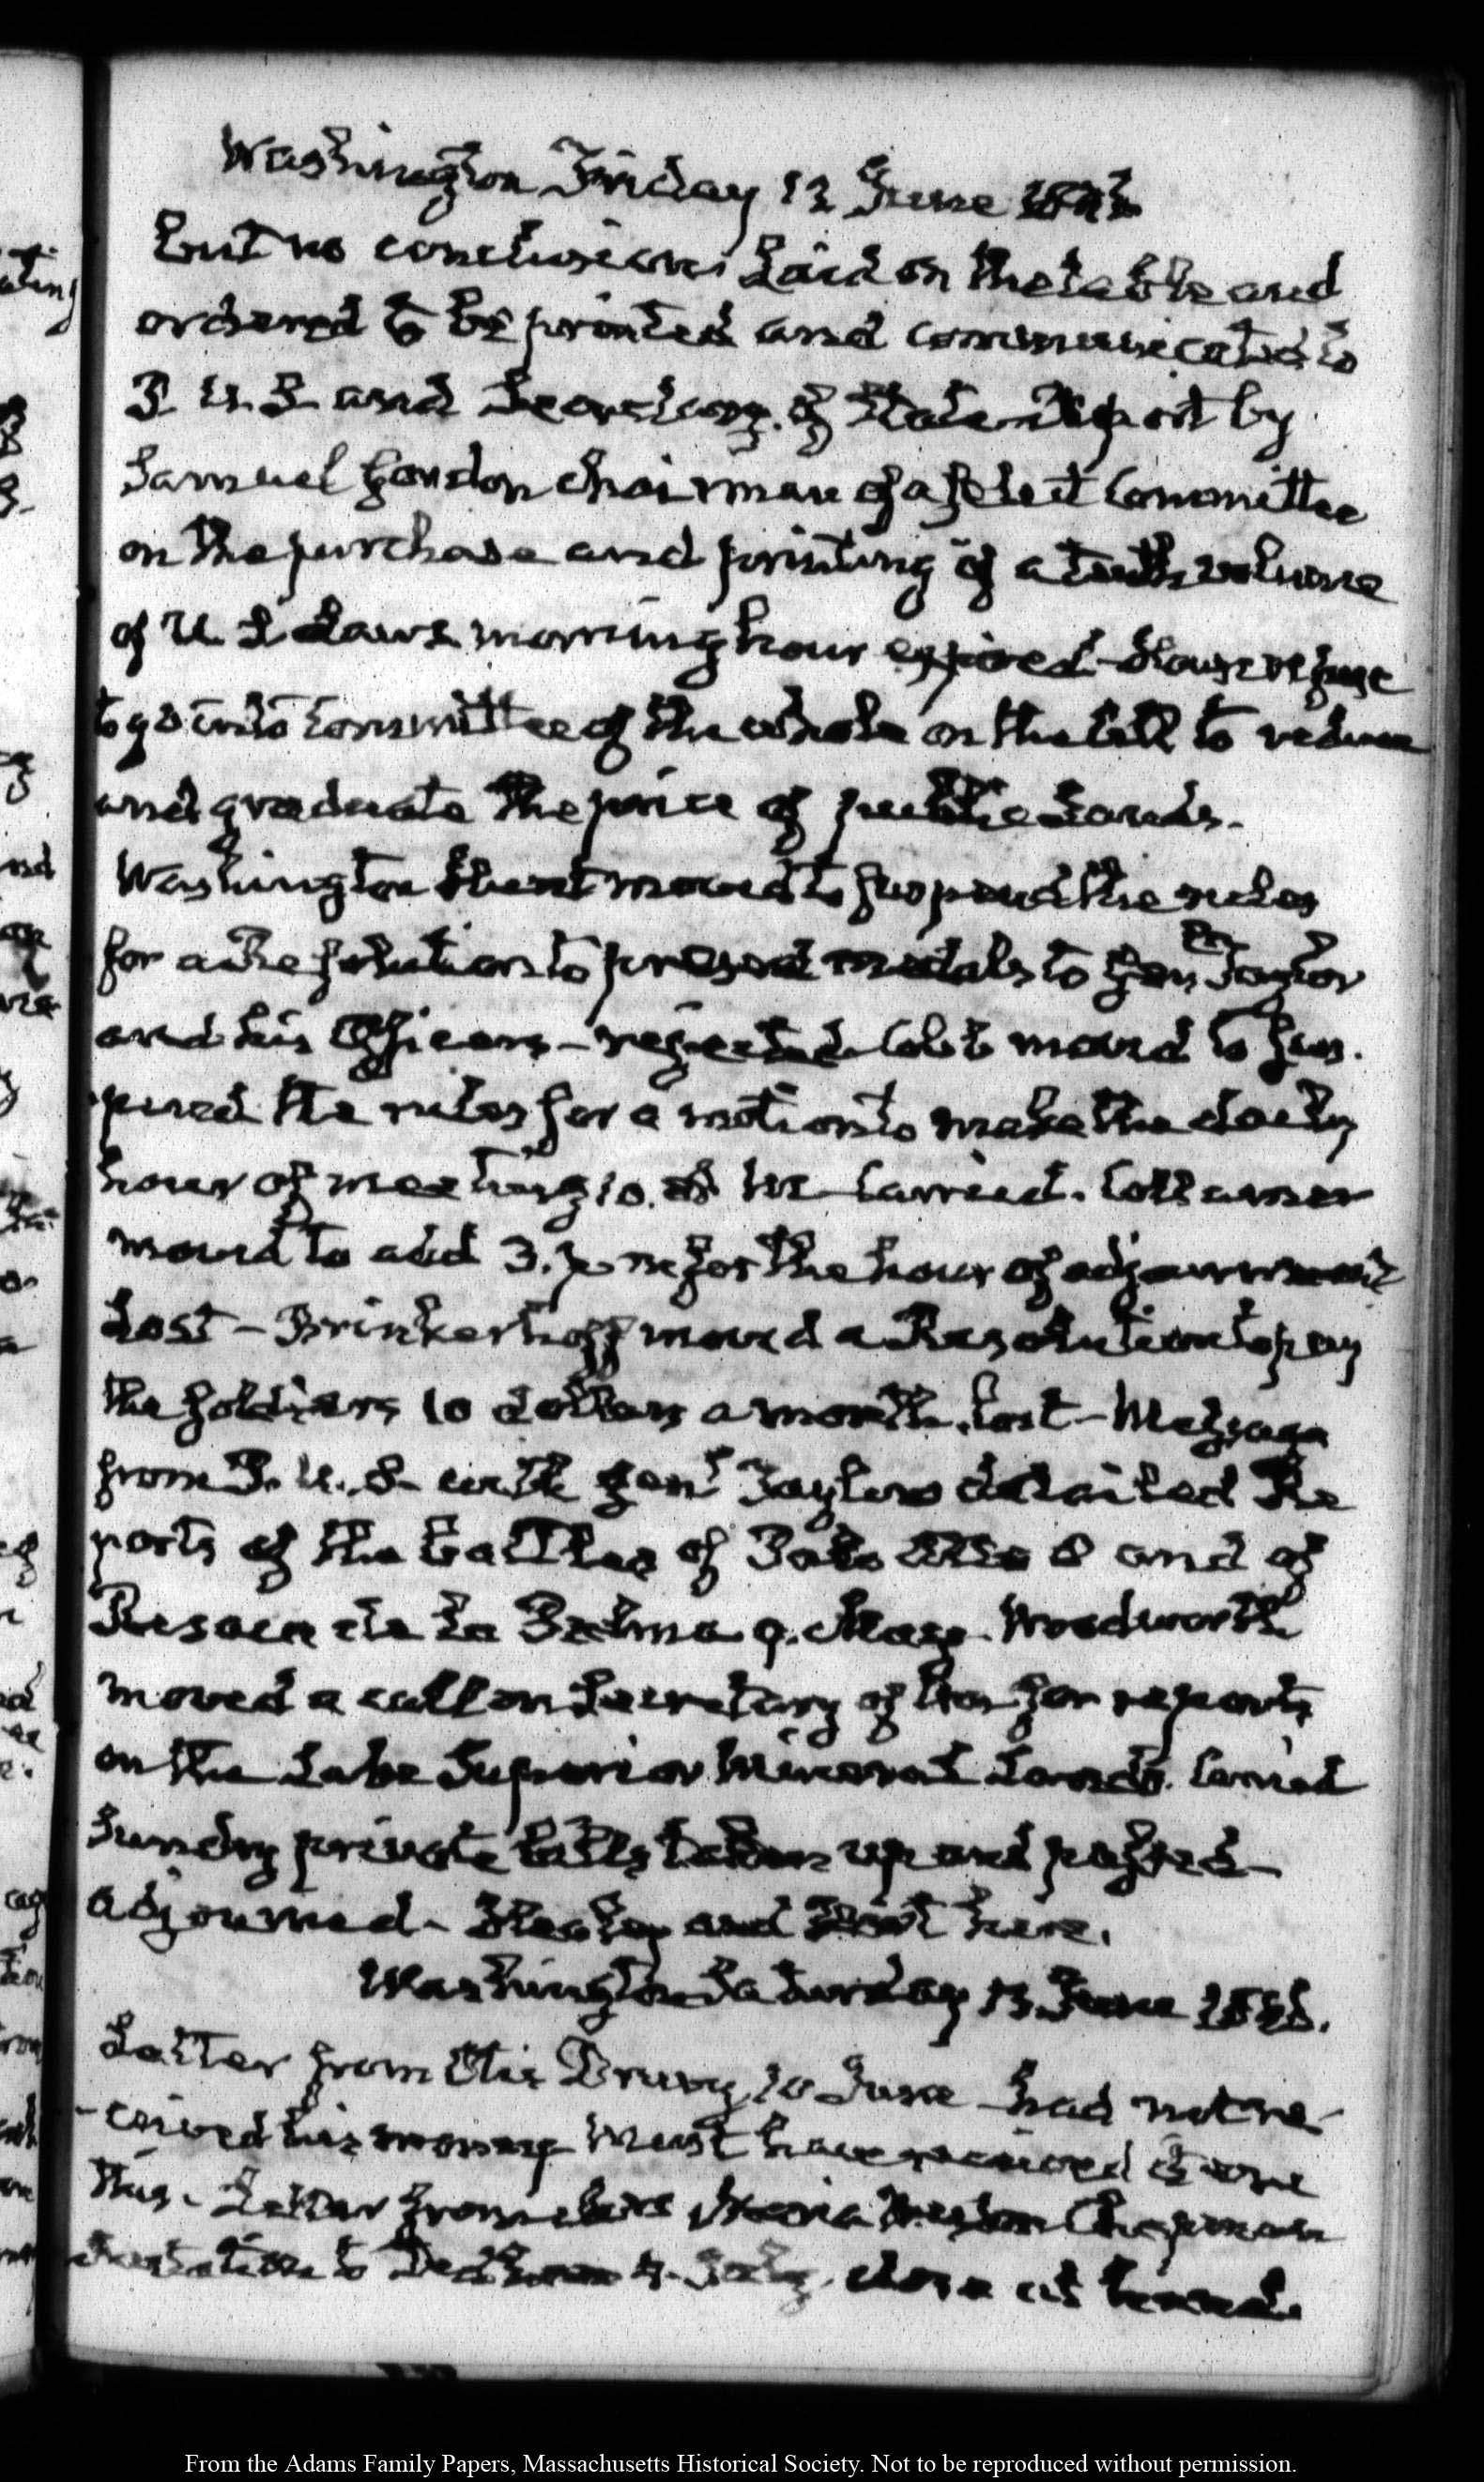 Washington Friday 12 June 1846
but no conclusion. Laid on the table and
ordered to be printed and communicated to
P. U.S and Secretary of State. Report by
Samuel Gordon chairman of a select Committee
on the purchase and printing of a tenth volume
of U.S Laws morning hour expired. House refuse
to go into Committee of the whole on the bill to reduce
and graduate the price of public Lands.
Washington Hunt moved to suspend the rules
for a Resolution to present medals to Genl. Taylor
and his Officers – rejected. Cobb moved to sus-
pend the rules for a motion to make the daily
hour of meeting 10. Carried. Collamer
moved to add 3. p m for the hour of adjournment
Lost – Brinkerhoff moved a Resolution to pay
the soldiers 10 dollars a month. lost – Message
from P. U.S. with Genl. Taylors detailed Re
ports of the battles of Palo Alto 8 and of
Resaca de la Palma 9. May. Woodworth
moved a call on Secretary of War for reports
on the Lake Superior Mineral Lands. Carried
Sundry private bills taken up and passed –
adjourned. and here.
Washington Saturday 13 June 1846.
Letter from Otis Drury 10 June had not re-
-ceived his money. Must have received it ere
this. Letter from Maria Weston Chapman
Invitation to Dedham 4. July.
From the Adams Family Papers, Massachusetts Historical Society. Not to be reproduced without permission.